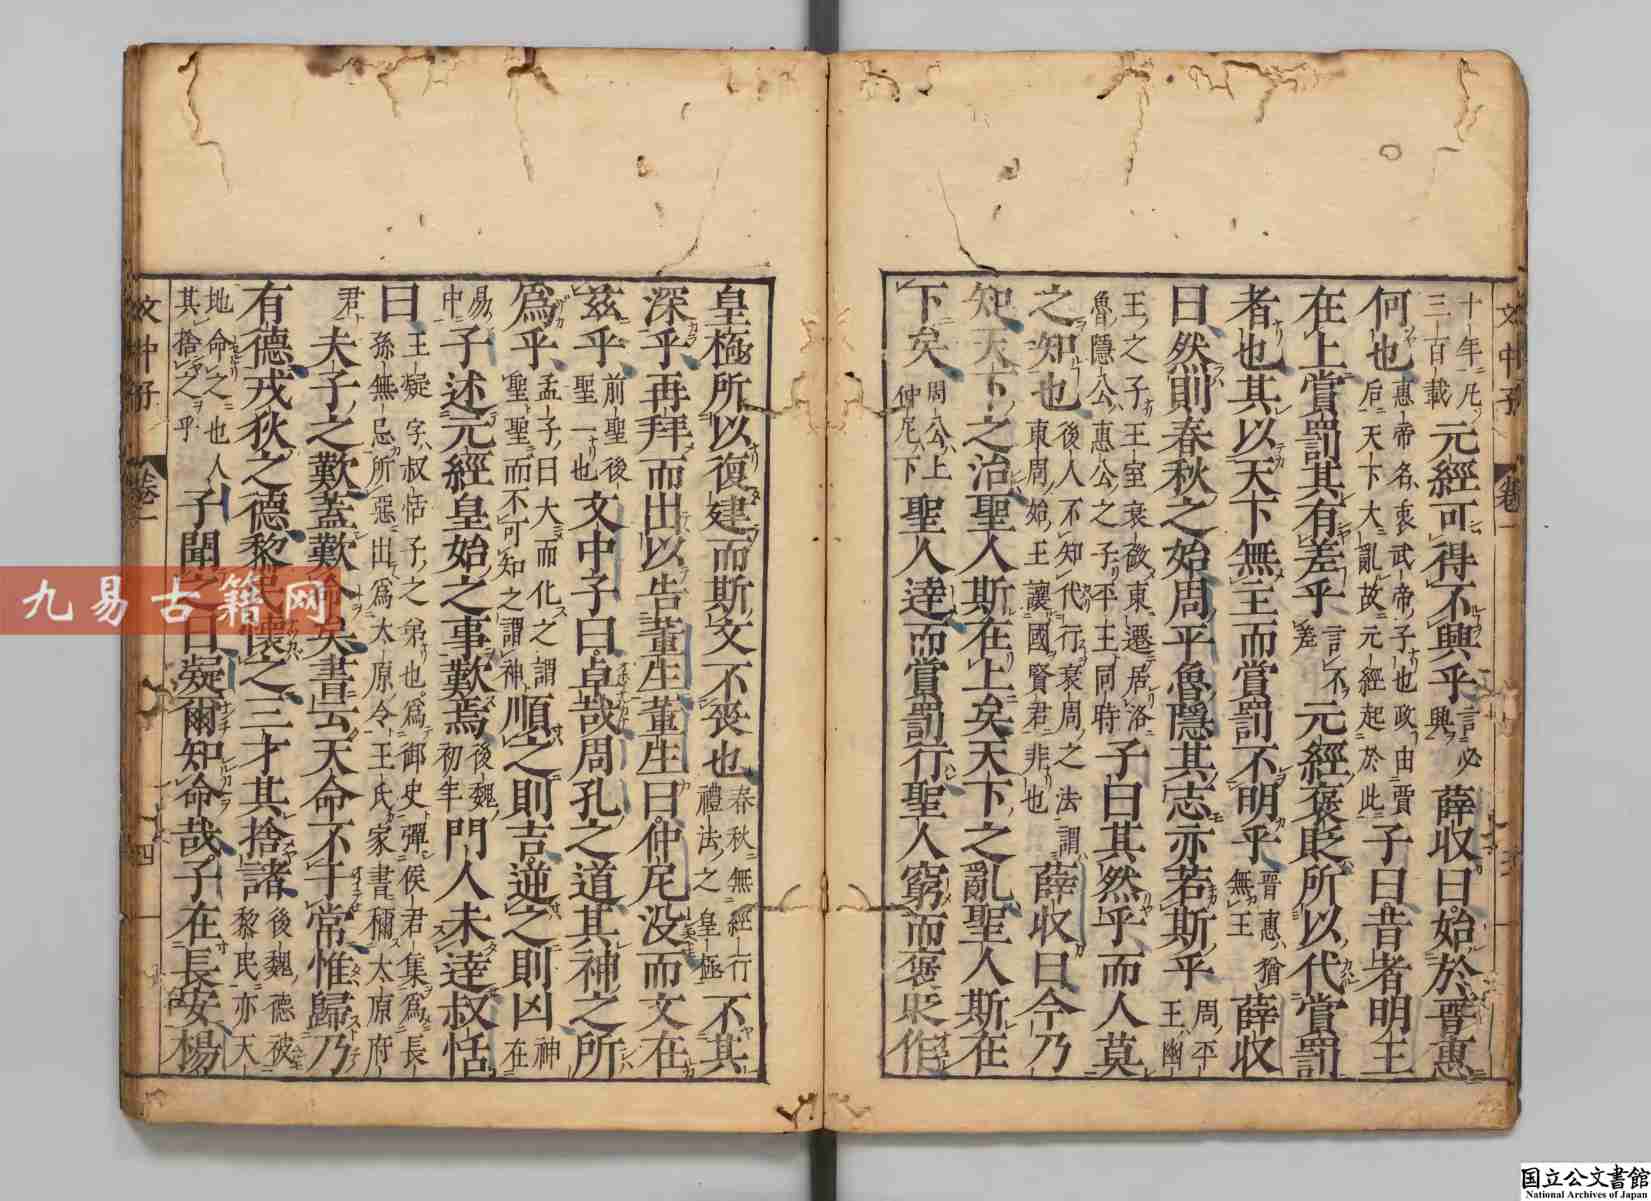 十年凡三百載元經可得不興乎言必興薛收曰始於晋惠
何也惠帝名衷武帝子也政由賈后天下大亂故元經起於此子曰昔者明王
在上賞罰其有差乎言不差元經褒貶所以代賞罰
者也其以天下無主而賞罰不明乎晋惠猶無王薛收
曰然則春秋之始周平魯隱其志亦若斯乎周平王幽
王之子王室衰微東遷居洛魯隱公惠公之子平王同時子曰其然乎而人莫
之知也後人不知代行衰周之法謂東周始王讓國賢君非也薛收曰今乃
知天下之治聖人斯在上矣天下之亂聖人斯在
下矣周公上仲尼下聖人達而賞罰行聖人窮而褒貶作
皇極所以復建而斯文不喪也春秋無經行禮法之皇極不其
深乎再拜而出以告董生董生曰仲尼没而文在
茲乎前聖後聖一也文中子曰卓哉周孔之道其神之所
爲乎孟子曰大而化之謂聖聖而不可知之謂神順之則吉逆之則凶神在
易中子述元經皇始之事歎焉後魏初年門人未達叔恬
曰王凝字叔恬子之弟也爲御史彈侯君集爲長孫無忌所惡出爲太原令王氏家書稱太原府
君夫子之歎蓋歎命矣書云天命不于常惟歸乃
有德戎狄之德黎民懷之三才其捨諸後魏德被黎民亦天
地命之也人其捨之乎子聞之曰凝爾知命哉子在長安楊
文中子
卷一
三
文中子
卷一
四
九易古籍网
国立公文書館
National Archives of Japan